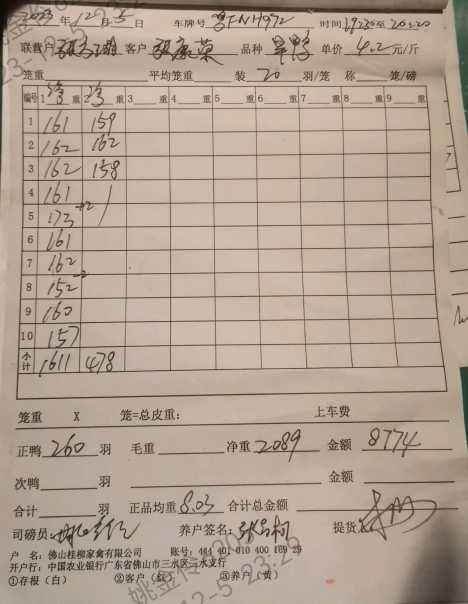 2023年12月5日 车牌号 粤FNH972 时间19:20至20:20
联营户 客户 张庭荣 品种 单价 4.2元/斤
笼重: 平均笼重 装 20 羽/笼 称 笼/磅
编号 1 净重 2 净重 3 重 4 重 5 重 6 重 7 重 8 重 9 重
1 161 159
2 162 162
3 162 158
4 161
5 173 +2
6 161
7 162
8 152 -2
9 160
10 157
小计 1611 478
笼重 X 笼=总皮重: 上车费
正鸭 260 羽 毛重 净重 2089 金额 8774
次鸭 羽 金额
合计 羽 正品均重 8.03 合计总金额
司磅员: 养户签名: 提货
户 名:佛山桂柳家禽有限公司 账号:
开户行:中国农业银行广东省佛山市三水区三水支行
①存根(白) ②客户(红) ③养户(黄)